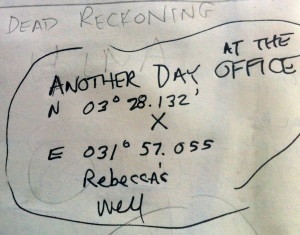 DEAD RECKONING
ANOTHER DAY AT THE OFFICE
N 03° 28.132'
X
E 031° 57.055
Rebecca's
Well